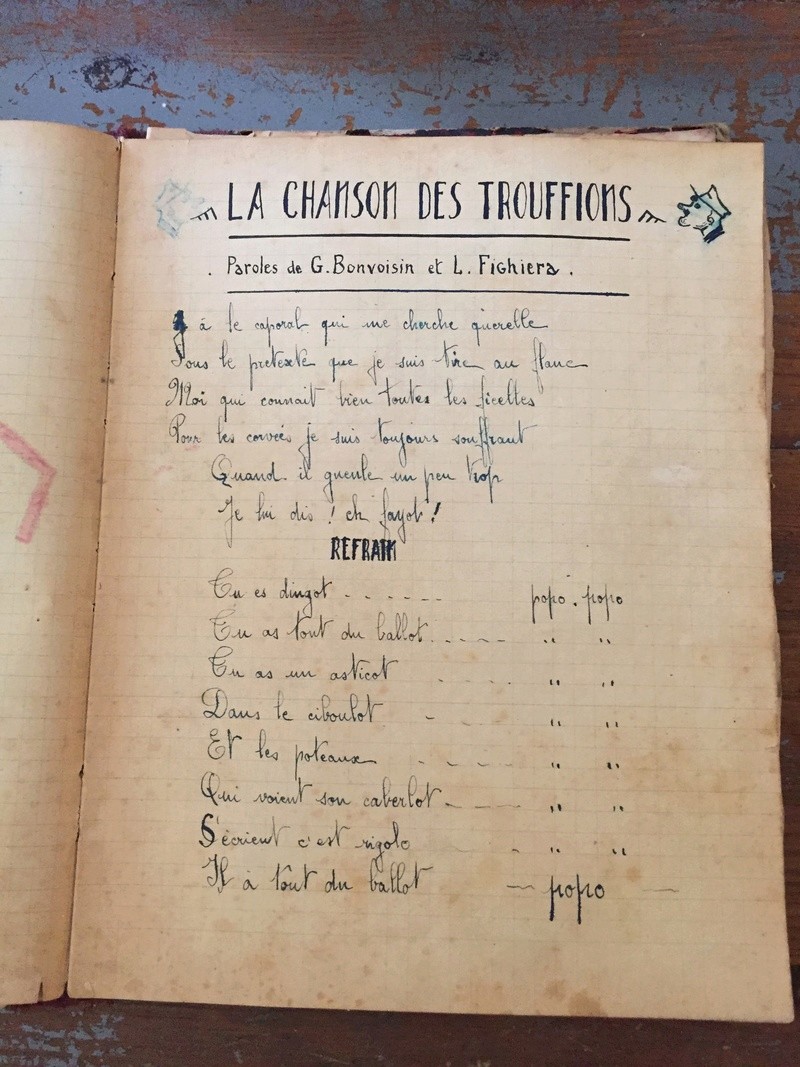 LA CHANSON DES TROUFFIONS
. Paroles de G. Bonvoisin et L. Fighiera .
Y à le caporal qui me cherche querelle
Sous le pretexte que je suis tire au flanc
Moi qui connait bien toutes les ficelles
Pour les corvées je suis toujours souffrant
Quand il gueule un peu trop
Je lui dis ! eh fayot !
REFRAIN
Tu es dingot - - - - - - popo . popo
Tu as tout du ballot. - - - - " "
Tu as un asticot - - - - " "
Dans le ciboulot - - - " "
Et les poteaux - - - - " "
Qui voient son caberlot - - - - " "
S'écrient c'est rigolo - - " "
Il à tout du ballot — popo —